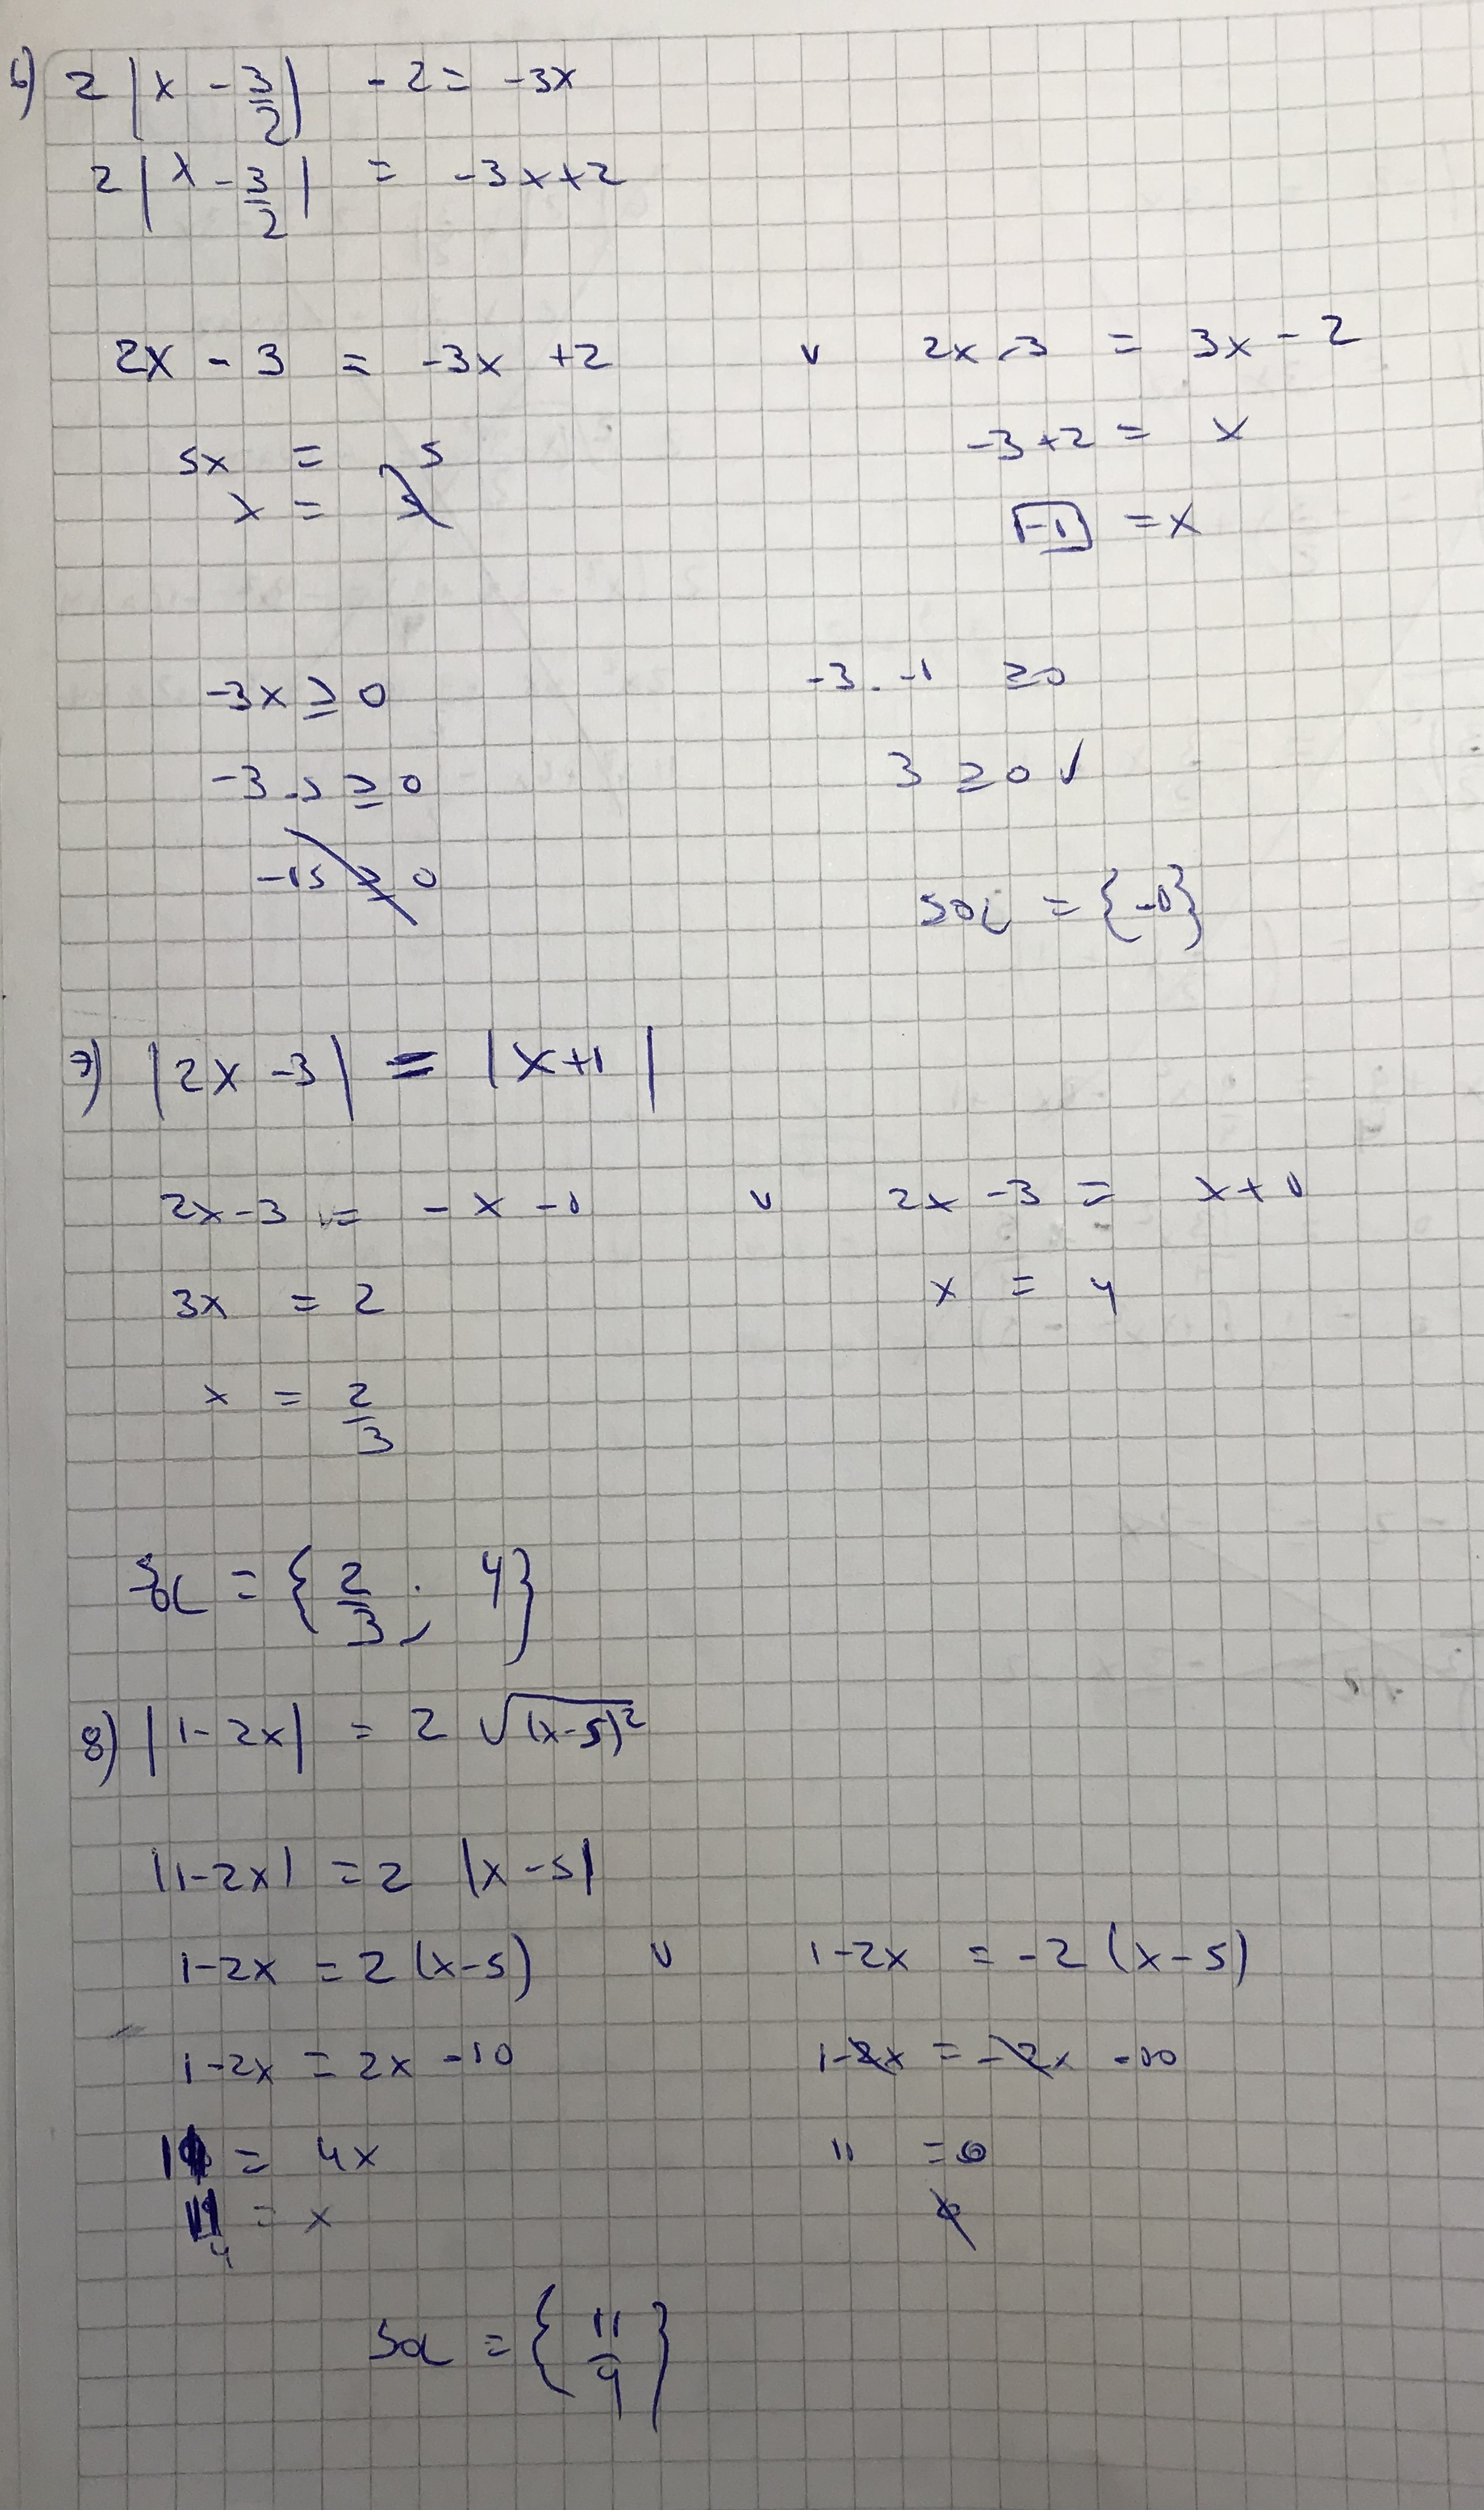 6) 2 |x - 3/2| - 2 = -3x
2 |x - 3/2| = -3x + 2
2x - 3 = -3x + 2 v 2x - 3 = 3x - 2
5x = 5 -3 + 2 = x
x = -1 = x
-3x ≥ 0 -3 . -1 ≥ 0
-3 . 5 ≥ 0 3 ≥ 0 ✓
-15 ≥ 0 SOL = {-1}
7) |2x - 3| = |x + 1|
2x - 3 = -x - 1 v 2x - 3 = x + 1
3x = 2 x = 4
x = 2/3
SOL = {2/3 ; 4}
8) |1 - 2x| = 2 √(x-5)²
|1 - 2x| = 2 |x - 5|
1 - 2x = 2 (x - 5) v 1 - 2x = -2 (x - 5)
1 - 2x = 2x - 10 1 - 2x = -2x - 10
11 = 4x 11 = 0
11/4 = x ∅
SOL = {11/4}